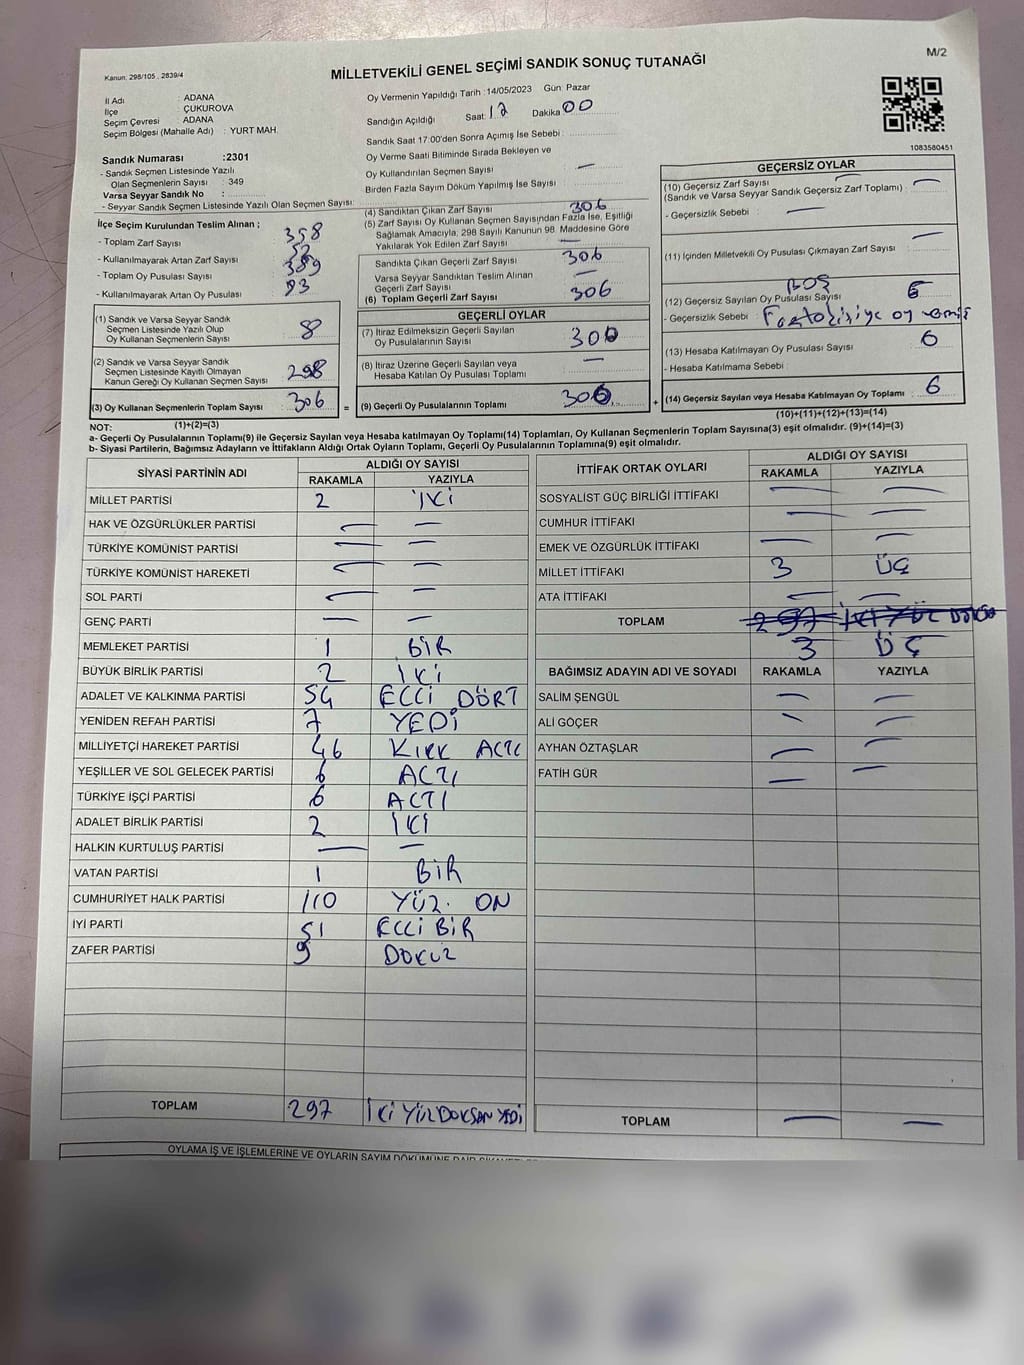 M/2
Kanun: 298/105 , 2839/4
MİLLETVEKİLİ GENEL SEÇİMİ SANDIK SONUÇ TUTANAĞI
İl Adı : ADANA
İlçe : ÇUKUROVA
Seçim Çevresi : ADANA
Seçim Bölgesi (Mahalle Adı) : YURT MAH.
Sandık Numarası :2301
- Sandık Seçmen Listesinde Yazılı
Olan Seçmenlerin Sayısı : 349
Varsa Seyyar Sandık No :
- Seyyar Sandık Seçmen Listesinde Yazılı Olan Seçmen Sayısı:
Oy Vermenin Yapıldığı Tarih :14/05/2023 Gün: Pazar
Sandığın Açıldığı Saat: 17 Dakika 00
Sandık Saat 17:00'den Sonra Açımış İse Sebebi :
Oy Verme Saati Bitiminde Sırada Bekleyen ve
Oy Kullandırılan Seçmen Sayısı : —
Birden Fazla Sayım Döküm Yapılmış İse Sayısı :
1083580451
İlçe Seçim Kurulundan Teslim Alınan ;
- Toplam Zarf Sayısı : 358
- Kullanılmayarak Artan Zarf Sayısı : 52
- Toplam Oy Pusulası Sayısı : 389
- Kullanılmayarak Artan Oy Pusulası : 93
(1) Sandık ve Varsa Seyyar Sandık
Seçmen Listesinde Yazılı Olup
Oy Kullanan Seçmenlerin Sayısı : 8
(2) Sandık ve Varsa Seyyar Sandık
Seçmen Listesinde Kayıtlı Olmayan
Kanun Gereği Oy Kullanan Seçmen Sayısı : 298
(3) Oy Kullanan Seçmenlerin Toplam Sayısı : 306 =
(1)+(2)=(3)
(4) Sandıktan Çıkan Zarf Sayısı : 306
(5) Zarf Sayısı Oy Kullanan Seçmen Sayısından Fazla İse, Eşitliği
Sağlamak Amacıyla, 298 Sayılı Kanunun 98. Maddesine Göre
Yakılarak Yok Edilen Zarf Sayısı : —
Sandıkta Çıkan Geçerli Zarf Sayısı : 306
Varsa Seyyar Sandıktan Teslim Alınan
Geçerli Zarf Sayısı : —
(6) Toplam Geçerli Zarf Sayısı : 306
GEÇERLİ OYLAR
(7) İtiraz Edilmeksizin Geçerli Sayılan
Oy Pusulalarının Sayısı : 300
(8) İtiraz Üzerine Geçerli Sayılan veya
Hesaba Katılan Oy Pusulası Toplamı : —
(9) Geçerli Oy Pusulalarının Toplamı : 300 +
GEÇERSİZ OYLAR
(10) Geçersiz Zarf Sayısı : —
(Sandık ve Varsa Seyyar Sandık Geçersiz Zarf Toplamı)
- Geçersizlik Sebebi : —
(11) İçinden Milletvekili Oy Pusulası Çıkmayan Zarf Sayısı : —
BOŞ
(12) Geçersiz Sayılan Oy Pusulası Sayısı : 6
- Geçersizlik Sebebi :
(13) Hesaba Katılmayan Oy Pusulası Sayısı : 6
- Hesaba Katılmama Sebebi :
(14) Geçersiz Sayılan veya Hesaba Katılmayan Oy Toplamı : 6
(10)+(11)+(12)+(13)=(14)
NOT:
a- Geçerli Oy Pusulalarının Toplamı(9) ile Geçersiz Sayılan veya Hesaba katılmayan Oy Toplamı(14) Toplamları, Oy Kullanan Seçmenlerin Toplam Sayısına(3) eşit olmalıdır. (9)+(14)=(3)
b- Siyasi Partilerin, Bağımsız Adayların ve İttifakların Aldığı Ortak Oyların Toplamı, Geçerli Oy Pusulalarının Toplamına(9) eşit olmalıdır.
SİYASİ PARTİNİN ADI ALDIĞI OY SAYISI
RAKAMLA YAZIYLA
MİLLET PARTİSİ 2 İKİ
HAK VE ÖZGÜRLÜKLER PARTİSİ — —
TÜRKİYE KOMÜNİST PARTİSİ — —
TÜRKİYE KOMÜNİST HAREKETİ — —
SOL PARTİ — —
GENÇ PARTİ — —
MEMLEKET PARTİSİ 1 BİR
BÜYÜK BİRLİK PARTİSİ 2 İKİ
ADALET VE KALKINMA PARTİSİ 54 ELLİ DÖRT
YENİDEN REFAH PARTİSİ 7 YEDİ
MİLLİYETÇİ HAREKET PARTİSİ 46 KIRK ALTI
YEŞİLLER VE SOL GELECEK PARTİSİ 6 ALTI
TÜRKİYE İŞÇİ PARTİSİ 6 ALTI
ADALET BİRLİK PARTİSİ 2 İKİ
HALKIN KURTULUŞ PARTİSİ — —
VATAN PARTİSİ 1 BİR
CUMHURİYET HALK PARTİSİ 110 YÜZ ON
İYİ PARTİ 51 ELLİ BİR
ZAFER PARTİSİ 9 DOKUZ
TOPLAM 297 İKİ YÜZ DOKSAN YEDİ
İTTİFAK ORTAK OYLARI ALDIĞI OY SAYISI
RAKAMLA YAZIYLA
SOSYALİST GÜÇ BİRLİĞİ İTTİFAKI — —
CUMHUR İTTİFAKI — —
EMEK VE ÖZGÜRLÜK İTTİFAKI — —
MİLLET İTTİFAKI 3 ÜÇ
ATA İTTİFAKI — —
TOPLAM 297 İKİ YÜZ
3 ÜÇ
BAĞIMSIZ ADAYIN ADI VE SOYADI RAKAMLA YAZIYLA
SALİM ŞENGÜL — —
ALİ GÖÇER — —
AYHAN ÖZTAŞLAR — —
FATİH GÜR — —
TOPLAM — —